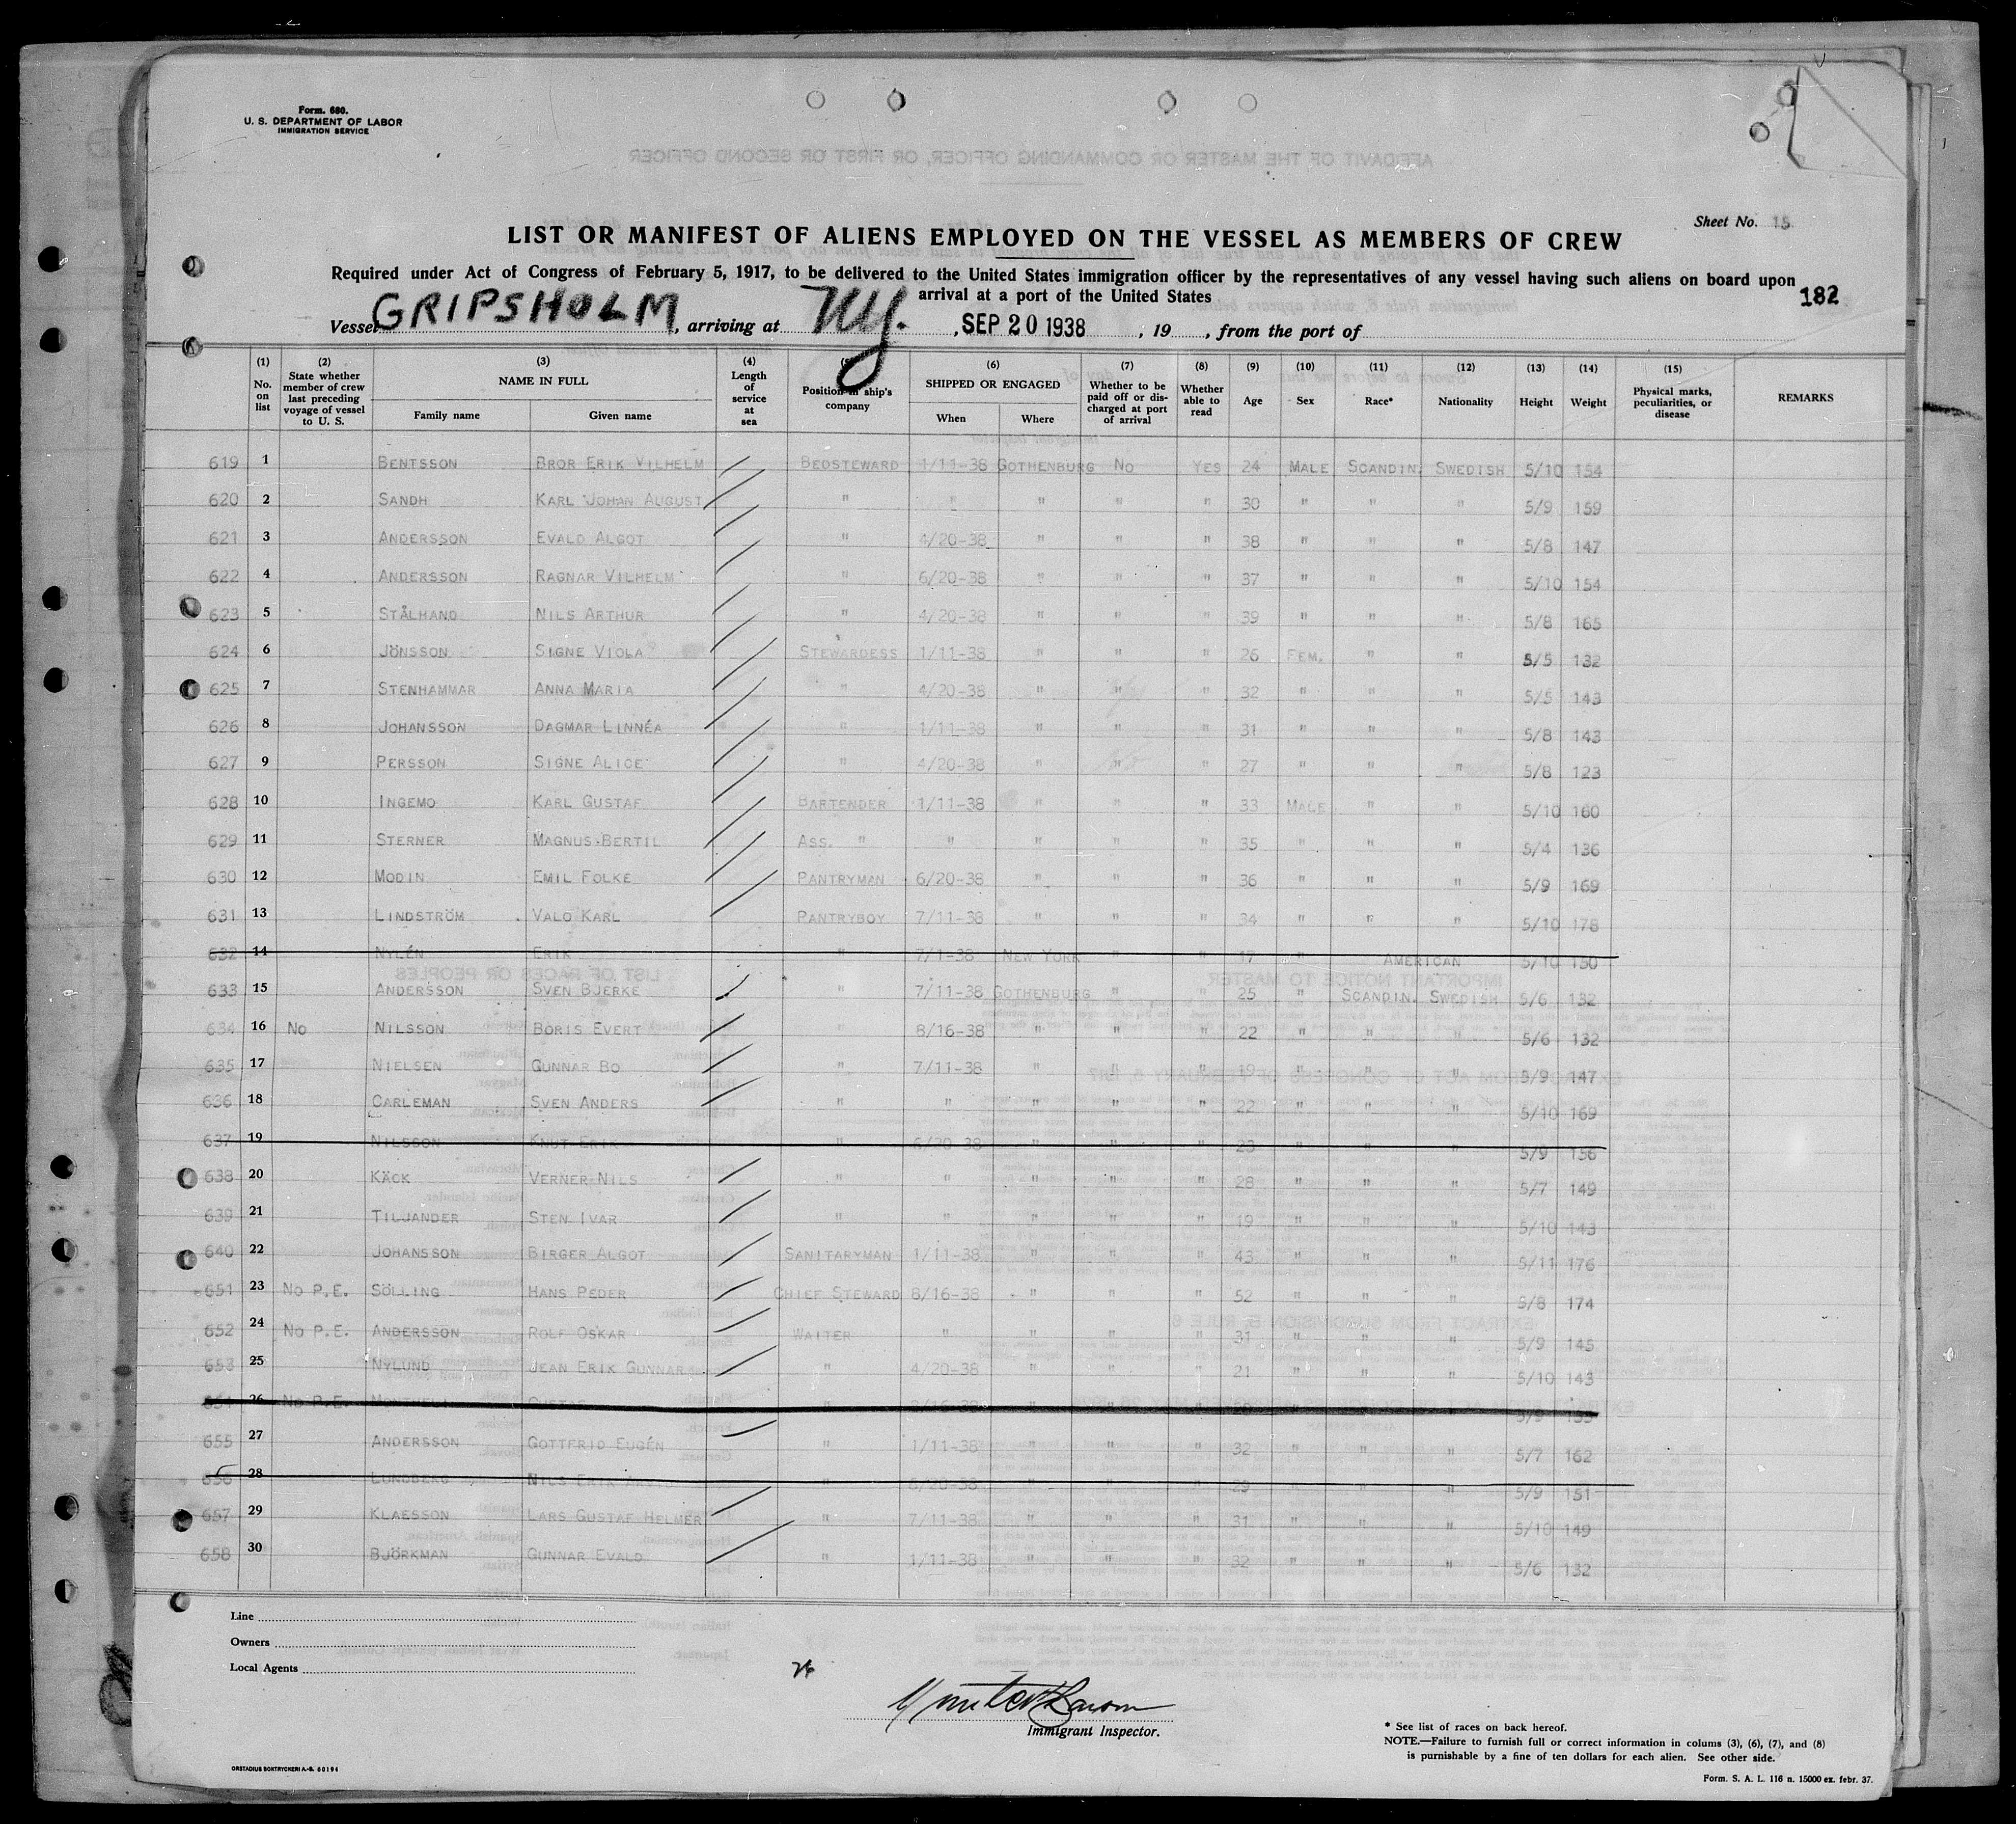 Form. 680.
U. S. DEPARTMENT OF LABOR
IMMIGRATION SERVICE
Sheet No. 15
LIST OR MANIFEST OF ALIENS EMPLOYED ON THE VESSEL AS MEMBERS OF CREW
Required under Act of Congress of February 5, 1917, to be delivered to the United States immigration officer by the representatives of any vessel having such aliens on board upon
arrival at a port of the United States
182
Vessel GRIPSHOLM, arriving at NY., SEP 20 1938, 19, from the port of
(1) No. on list (2) State whether member of crew last preceding voyage of vessel to U. S. (3) NAME IN FULL Family name Given name (4) Length of service at sea (5) Position in ship's company (6) SHIPPED OR ENGAGED When Where (7) Whether to be paid off or discharged at port of arrival (8) Whether able to read (9) Age (10) Sex (11) Race* (12) Nationality (13) Height (14) Weight (15) Physical marks, peculiarities, or disease REMARKS
619 1 BENTSSON BROR ERIK VILHELM BEDSTEWARD 1/11-38 GOTHENBURG NO YES 24 MALE SCANDIN. SWEDISH 5/10 154
620 2 SANDH KARL JOHAN AUGUST " " " " " 30 " " " 5/9 159
621 3 ANDERSSON EVALD ALGOT " 4/20-38 " " " 38 " " " 5/8 147
622 4 ANDERSSON RAGNAR VILHELM " 6/20-38 " " " 37 " " " 5/10 154
623 5 STÅLHAND NILS ARTHUR " 4/20-38 " " " 39 " " " 5/8 165
624 6 JÖNSSON SIGNE VIOLA STEWARDESS 1/11-38 " " " 26 FEM. " " 5/5 132
625 7 STENHAMMAR ANNA MARIA " 4/20-38 " " " 32 " " " 5/5 143
626 8 JOHANSSON DAGMAR LINNÉA " 1/11-38 " " " 31 " " " 5/8 143
627 9 PERSSON SIGNE ALICE " 4/20-38 " " " 27 " " " 5/8 123
628 10 INGEMO KARL GUSTAF BARTENDER 1/11-38 " " " 33 MALE " " 5/10 160
629 11 STERNER MAGNUS BERTIL ASS. " " " " " 35 " " " 5/4 136
630 12 MODIN EMIL FOLKE PANTRYMAN 6/20-38 " " " 36 " " " 5/9 169
631 13 LINDSTRÖM VALO KARL PANTRYBOY 7/11-38 " " " 34 " " " 5/10 178
632 14 NYLÉN ERIK " 7/1-38 NEW YORK " " 17 " AMERICAN 5/10 150
633 15 ANDERSSON SVEN BJERKE " 7/11-38 GOTHENBURG " " 25 " SCANDIN. SWEDISH 5/6 132
634 16 NO NILSSON BORIS EVERT " 8/16-38 " " " 22 " " " 5/6 132
635 17 NIELSEN GUNNAR BO " 7/11-38 " " " 19 " " " 5/9 147
636 18 CARLEMAN SVEN ANDERS " " " " " 22 " " " 5/10 169
637 19 NILSSON KNUT ERIK " 6/20-38 " " " 23 " " " 5/9 156
638 20 KÄCK VERNER NILS " " " " " 28 " " " 5/7 149
639 21 TILJANDER STEN IVAR " " " " " 19 " " " 5/10 143
640 22 JOHANSSON BIRGER ALGOT SANITARYMAN 1/11-38 " " " 43 " " " 5/11 176
651 23 NO P.E. SÖLLING HANS PEDER CHIEF STEWARD 8/16-38 " " " 52 " " " 5/8 174
652 24 NO P.E. ANDERSSON ROLF OSKAR WAITER " " " " 31 " " " 5/9 145
653 25 NYLUND JEAN ERIK GUNNAR " 4/20-38 " " " 21 " " " 5/10 143
654 26 NO P.E. " " " " " " " 5/9
655 27 ANDERSSON GOTTFRID EUGÉN " 1/11-38 " " " 32 " " " 5/7 162
656 28 LUNDBERG NILS ERIK ARVID " 6/20-38 " " " 29 " " " 5/9 151
657 29 KLAESSON LARS GUSTAF HELMER " 7/11-38 " " " 31 " " " 5/10 149
658 30 BJÖRKMAN GUNNAR EVALD " 1/11-38 " " " 32 " " " 5/6 132
Line
Owners
Local Agents
26
Immigrant Inspector.
* See list of races on back hereof.
NOTE.—Failure to furnish full or correct information in colums (3), (6), (7), and (8)
is punishable by a fine of ten dollars for each alien. See other side.
ORSTADIUS BOKTRYCKERI A.-B. 60194
Form. S. A. L. 116 n. 15000 ex. febr. 37.